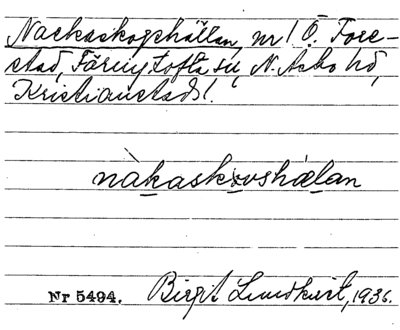 Nackaskogshällan, nr 1 Ö. Fore-
stad, Färingtofta sn, N. Åsbo hd,
Kristianstads l.
nàkaskovshälan
Nr 5494. Birgit Lundkvist, 1936.